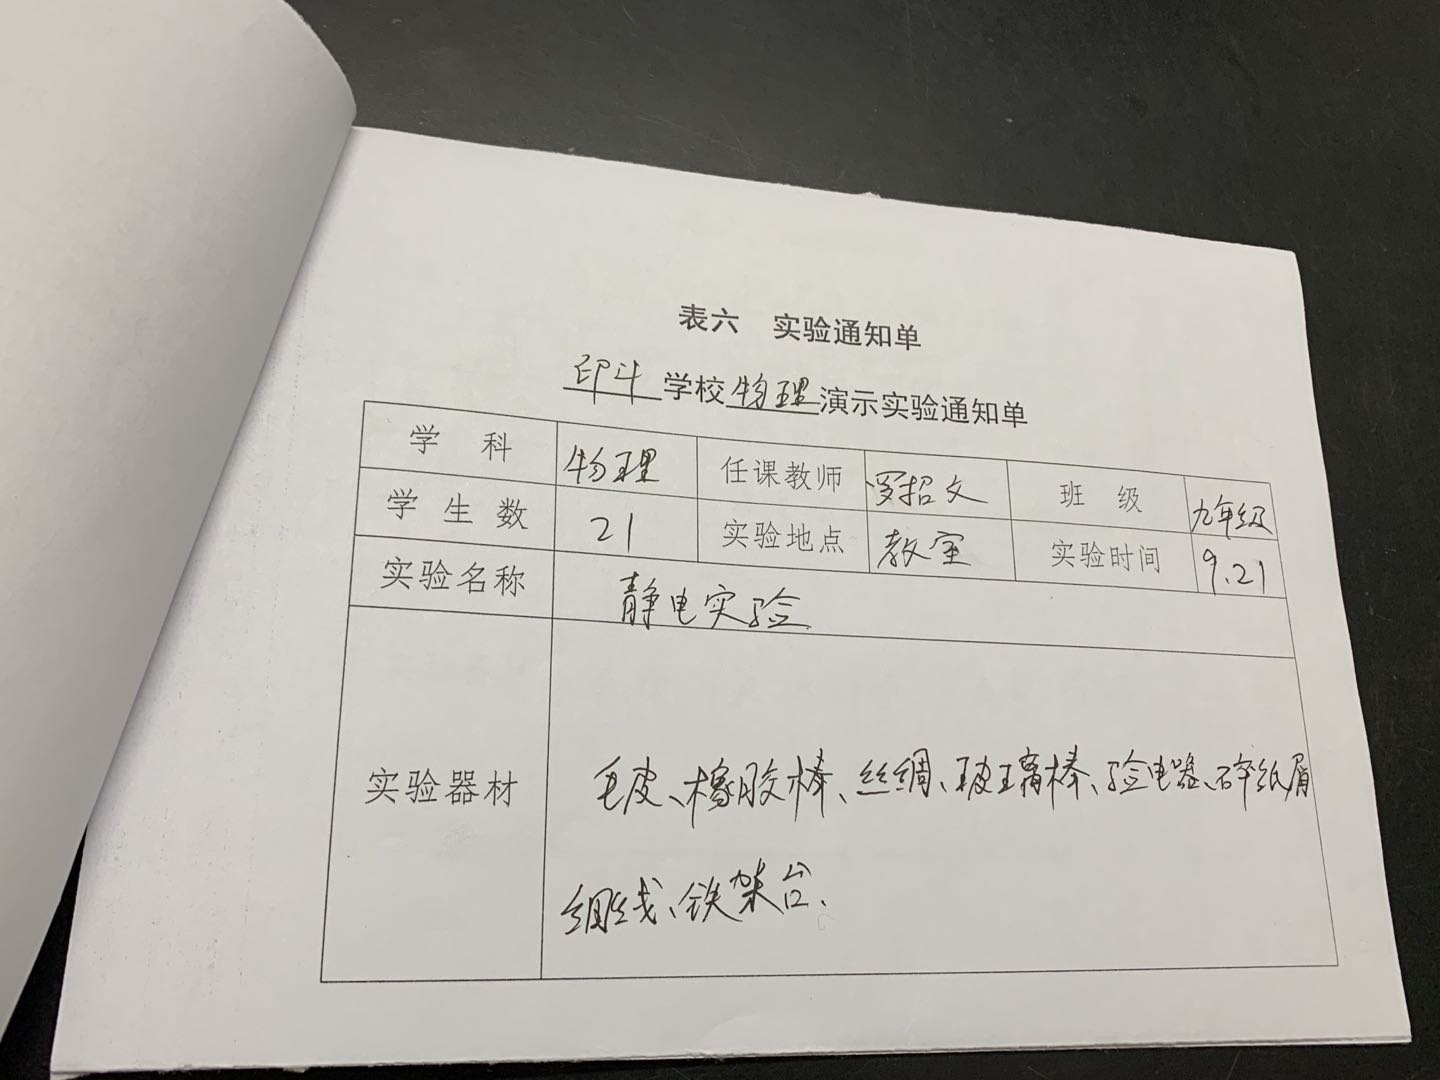 表六 实验通知单
印斗学校物理演示实验通知单
学科 物理 任课教师 罗招文 班级 九年级
学生数 21 实验地点 教室 实验时间 9.21
实验名称 静电实验
实验器材 毛皮、橡胶棒、丝绸、玻璃棒、验电器、碎纸屑
细线、铁架台、